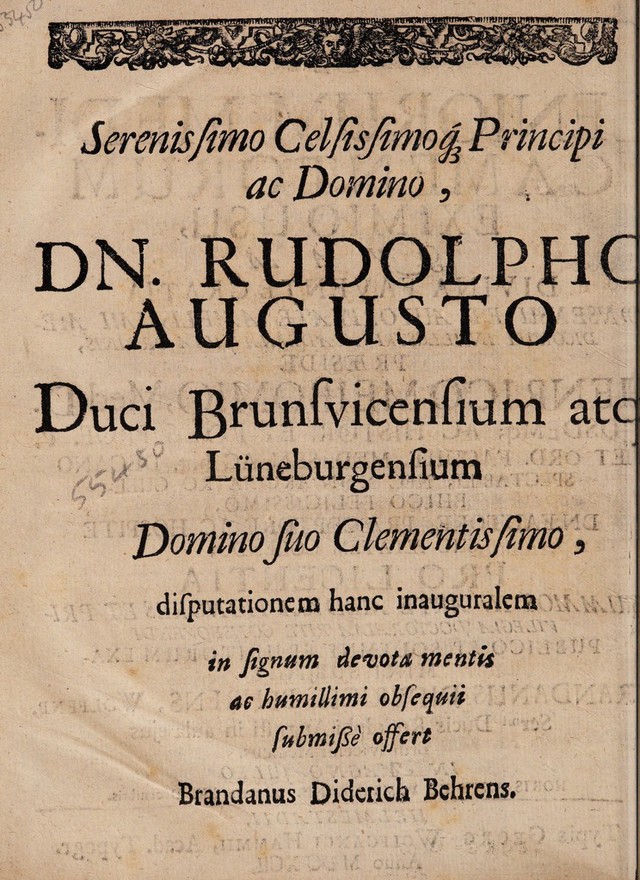 55450
Serenisſimo Celſisſimoq́ꝫ Principi
ac Domino,
DN. RUDOLPHO
AUGUSTO
Duci Brunſvicenſium atq
Lüneburgenſium
55450
Domino ſuo Clementisſimo,
diſputationem hanc inauguralem
in ſignum devotæ mentis
ac humillimi obſequii
ſubmißè offert
Brandanus Diderich Behrens.